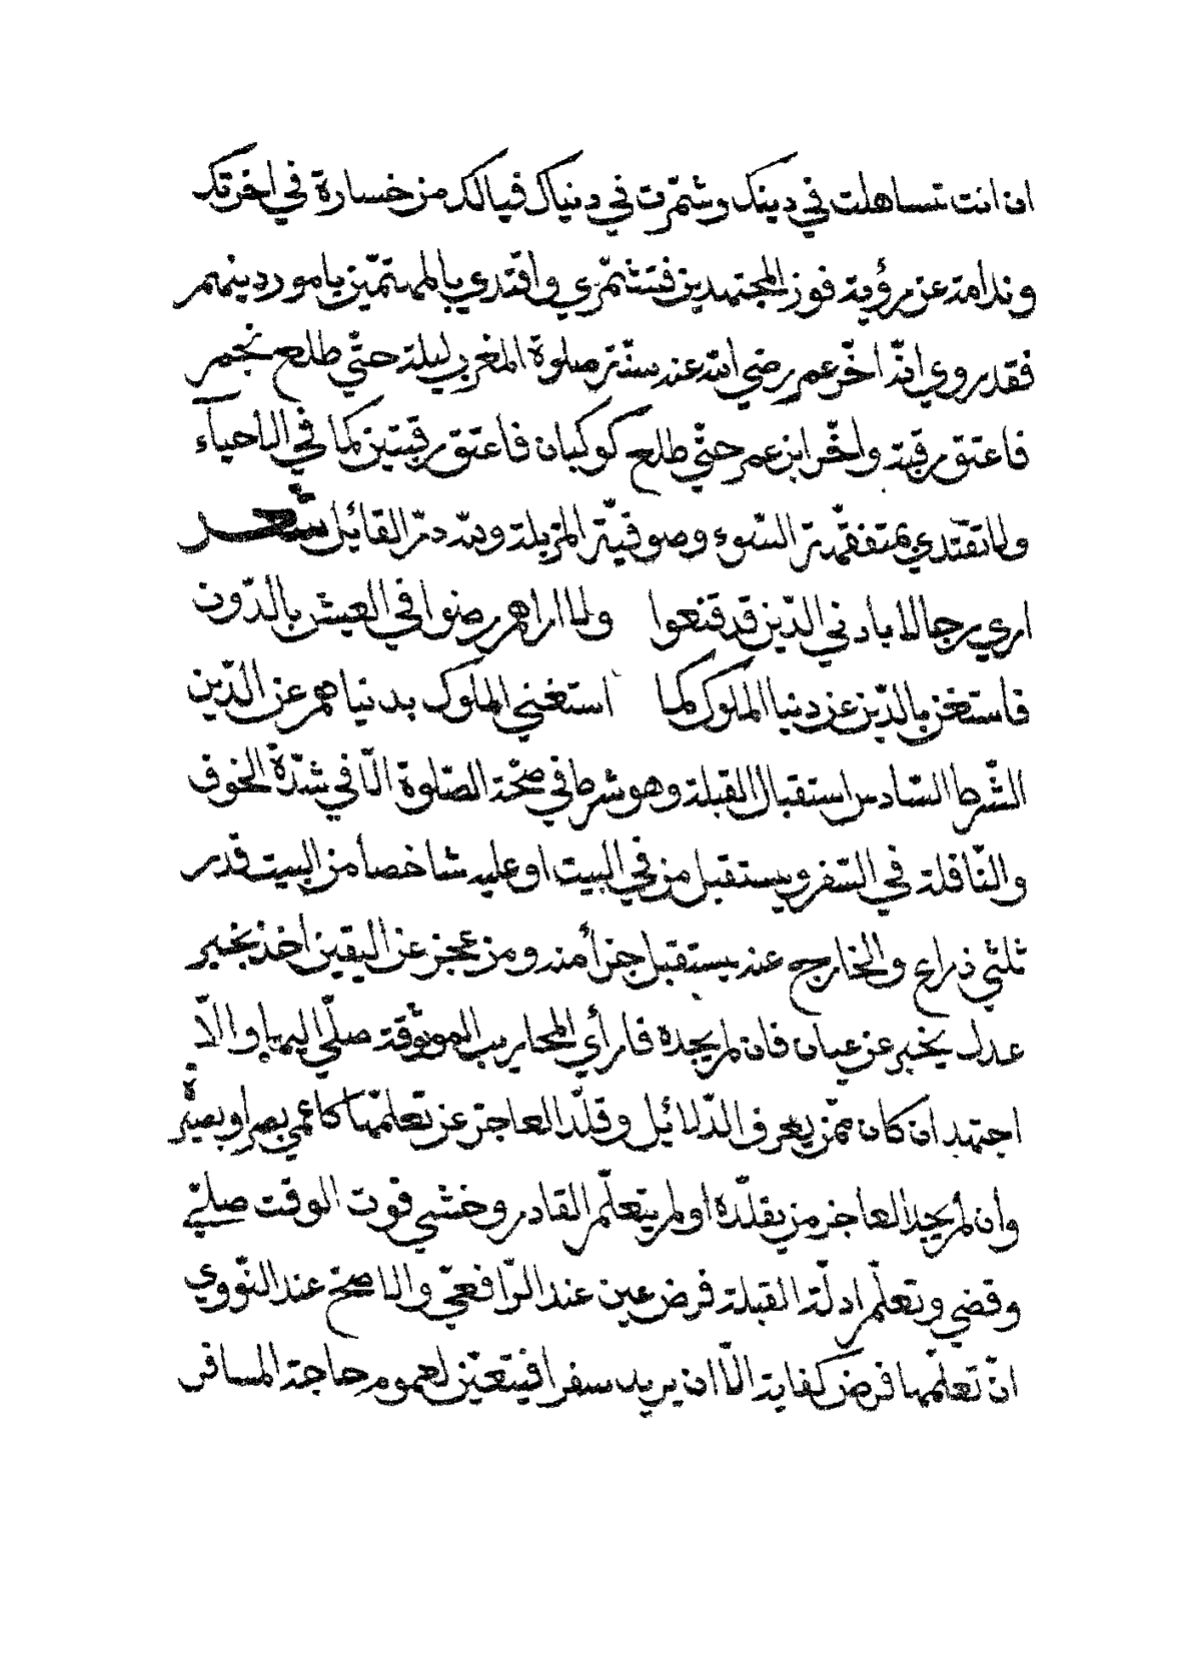 ان انت تساهلت في دينك وشمّرت في دنياك فيالك من خسارة في اخرتك
وندامة عن رؤية فوز المجتهدين فتشمّري واقتدي بالمهتمّين بامور دينهم
فقد روي انّه اخّر عمر رضي الله عنه سنّة صلوة المغرب ليلة حتّي طلع نجم
فاعتق رقبة واخّر ابن عمر حتّي طلع كوكبان فاعتق رقبتين كما في الأحياء
ولا تقتدي بمتفقّهة السّوء وصوفيّة المزبلة ولله درّ القائل شعر
اري رجالا بادني الدّين قد قنعوا ولا اراهم رضوا في العيش بالدّون
فاستغن بالدّين عن دنيا الملوك كما استغني الملوك بدنياهم عن الدّين
الشّرط السّادس استقبال القبلة وهو شرط في صحّة الصّلوة الّا في شدّة الخوف
والنّافلة في السّفر ويستقبل من في البيت او عليه شاخصا من البيت قدر
ثلثي ذراع والخارج عنه يستقبل جزأ منه ومن عجز عن اليقين اخذ بخبر
عدل يخبر عن عيان فان لم يجده فارأي المحاريب الموثوقة صلّي اليها والّا
اجتهد ان كان ممّن يعرف الدّلائل وقلّد العاجز عن تعلّمها كاعمي بصر او بصيرة
وان لم يجد العاجز من يقلّده او لم يتعلّم القادر وخشي فوت الوقت صلّي
وقضي وتعلّم ادلّة القبلة فرض عين عند الرّافعيّ والاصحّ عند النّووي
انّ تعلّمها فرض كفاية الّا ان يريد سفرا فيتعيّن لعموم حاجة المسافر